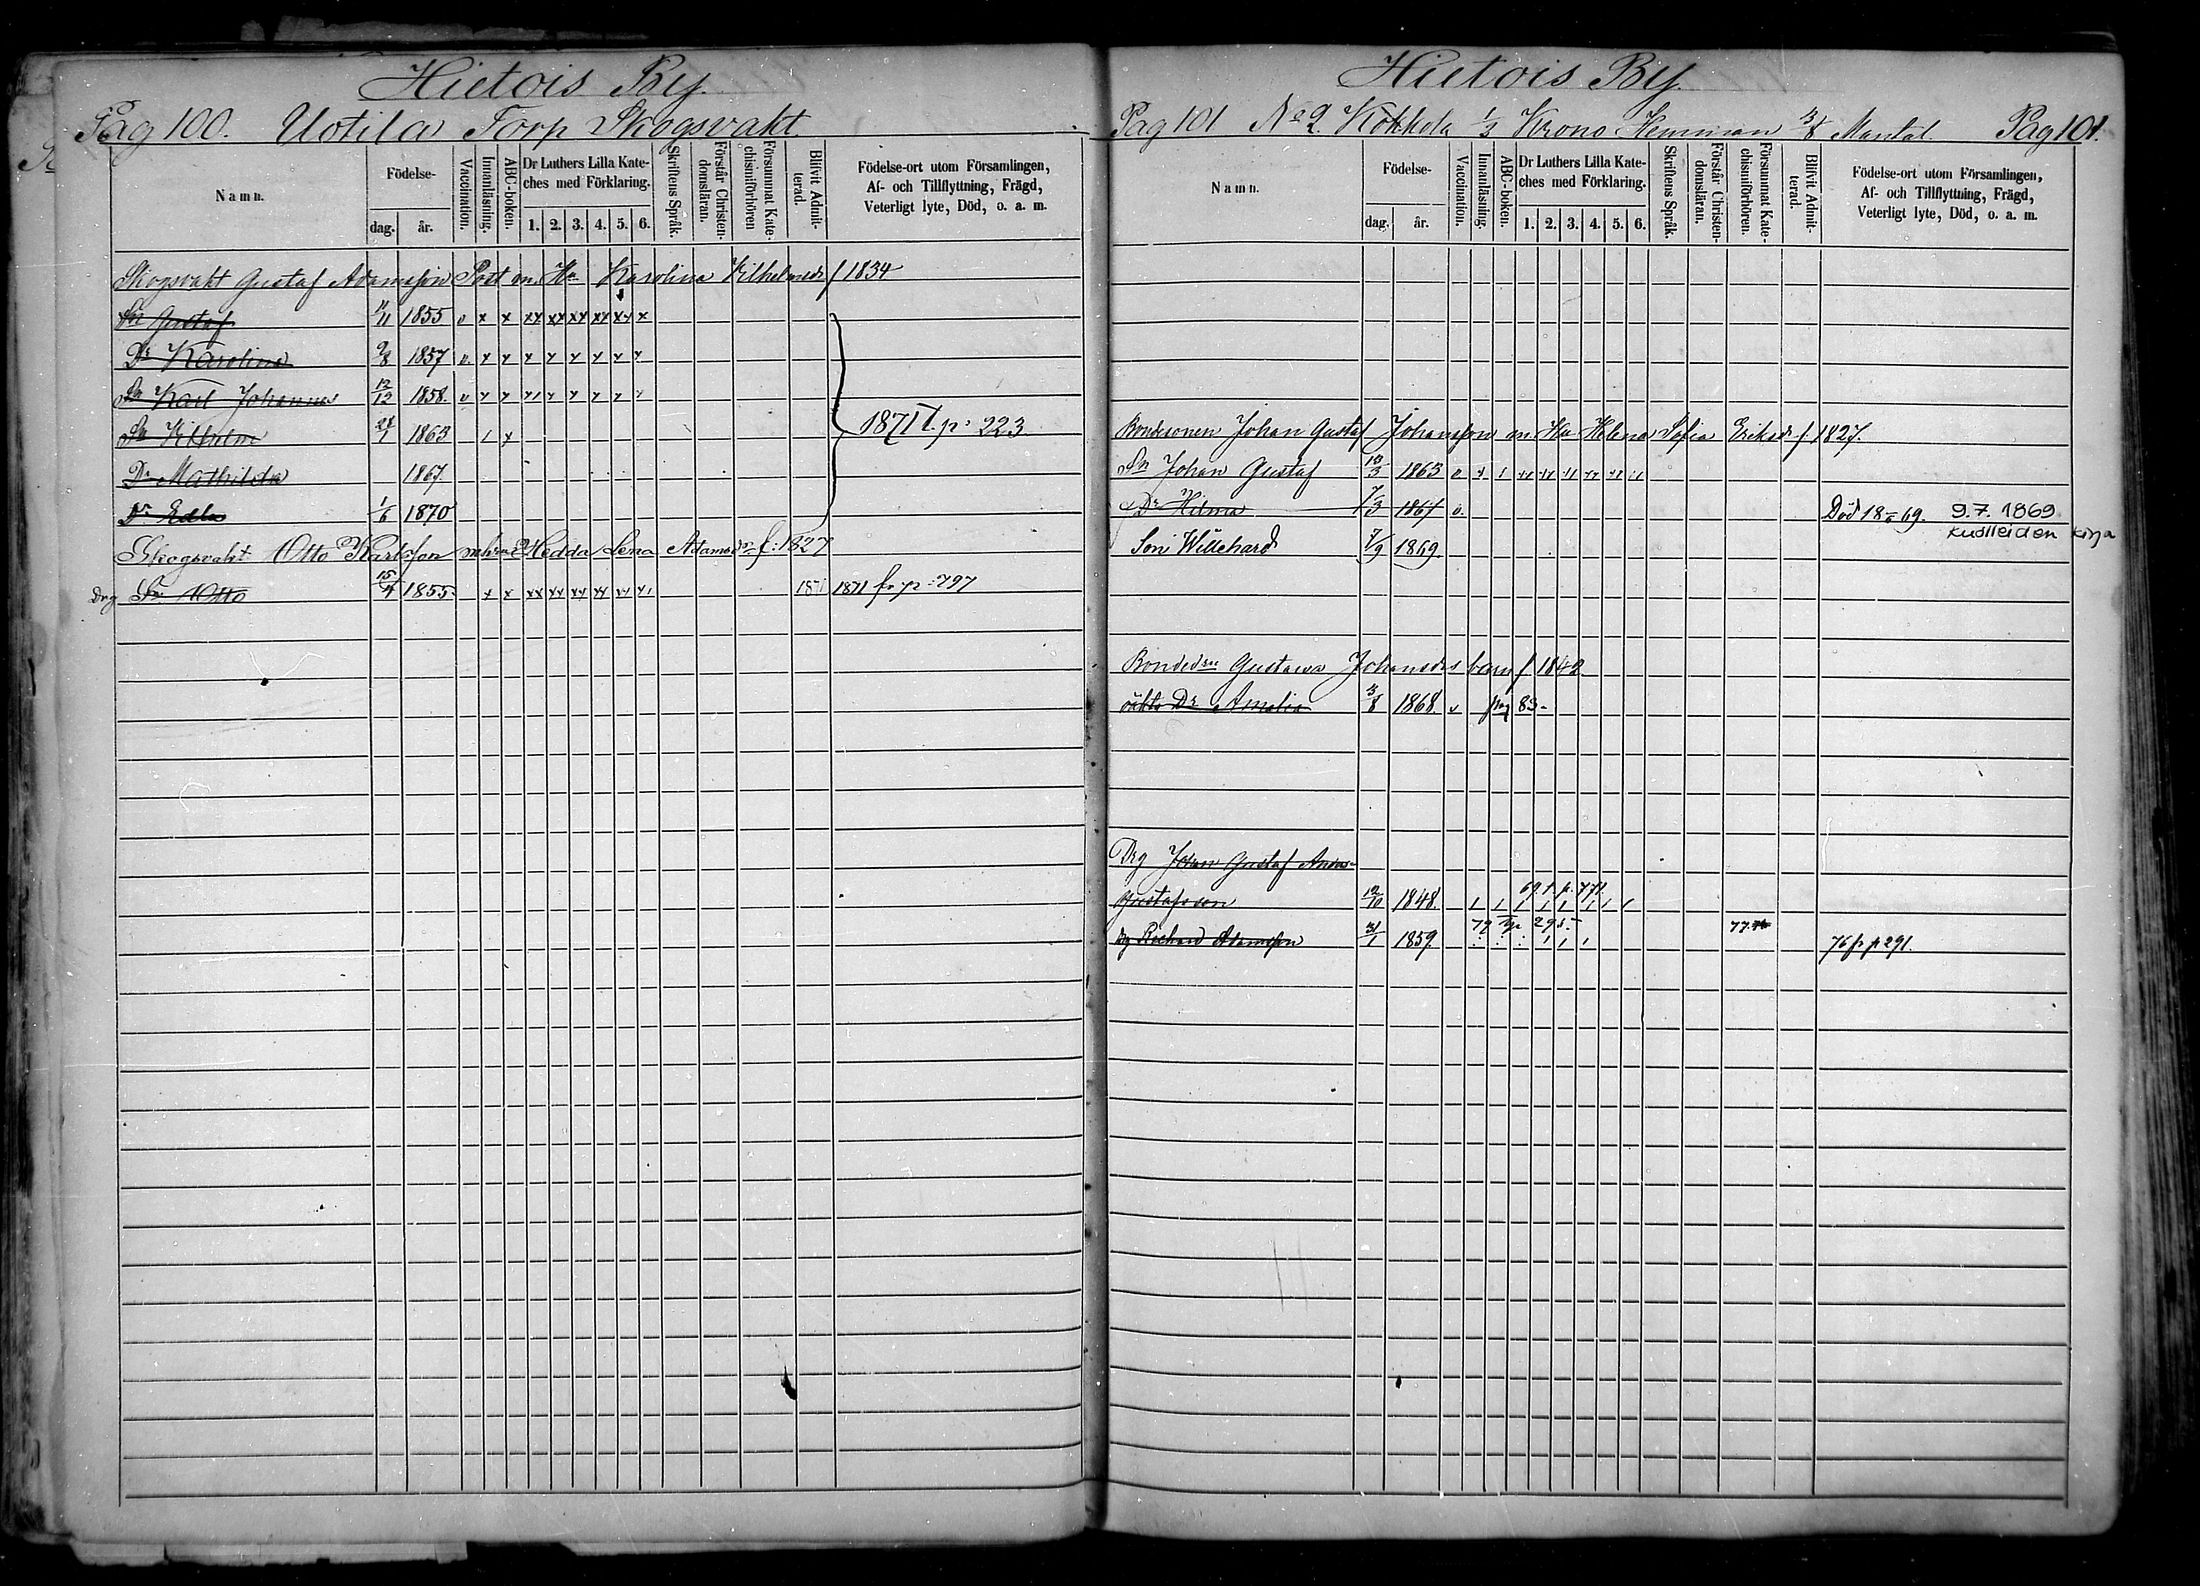 Hietois By.
Pag 100. Uotila Torp Skogsvakt.
Namn. Födelse- dag. år. Vaccination. Innanläsning. ABC-boken. Dr Luthers Lilla Kateches med Förklaring. 1. 2. 3. 4. 5. 6. Skriftens Språk. Förstår Christendomsläran. Försummat Katechismiförhören Blifvit Admitterad. Födelse-ort utom Församlingen, Af- och Tillflyttning, Frägd, Veterligt lyte, Död, o. a. m.
Skogsvakt Gustaf Adamsson Post m. Hu Karolina Vilhelmsdr f 1834
Sn Gustaf 11 1855 v x x xx xx xx xx xx x
Dr Karolina 9/8 1857 v. x x x x x x x x
Sn Karl Johannes 12/12 1858. v x x x x x x x
Sn Vilhelm 28/1 1863 1 x 1871 T. p: 223
Dr Mathilda 1867.
Dr Edla 1/6 1870
Skogsvakt Otto Karlsson m hu Hedda Lena Adamsdr f: 1827
Drg Sn. Otto 15/4 1855 x x xx xx xx xx xx x1 1871 1871 fr p: 797
Hietois By
Pag 101 No 2. Kokkola 1/3 Krono Hemman 3/8 Mantal. Pag 101.
Namn. Födelse- dag. år. Vaccination. Innanläsning. ABC-boken. Dr Luthers Lilla Kateches med Förklaring. 1. 2. 3. 4. 5. 6. Skriftens Språk. Förstår Christendomsläran. Försummat Katechismiförhören. Blifvit Admitterad. Födelse-ort utom Församlingen, Af- och Tillflyttning, Frägd, Veterligt lyte, Död, o. a. m.
Bondesonen Johan Gustaf Johansson m. Hu Helena Sofia Eriksdr f. 1827.
Sn Johan Gustaf 10/3 1863 v.
Dr Hilma 7/3 1867 v. Död 18 69. 9.7. 1869
kuolleiden kirja
Son Willehard 7/9 1869.
Bondedrn Gustava Johansdrs barn f 1842
oäkta Dr Amalia 3/8 1868. v pag 83.
Drg Johan Gustaf Anders
Gustafsson 12/10 1848. 69. t. p. 771.
Drg Richard Adamsson 31/1 1859. 79 T p 295 77. 76 fr p 291.